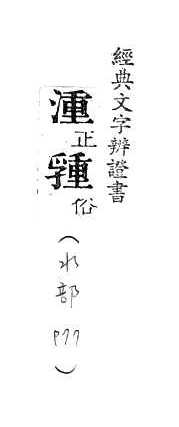 經典文字辨證書
湩正
俗
(水部P77)